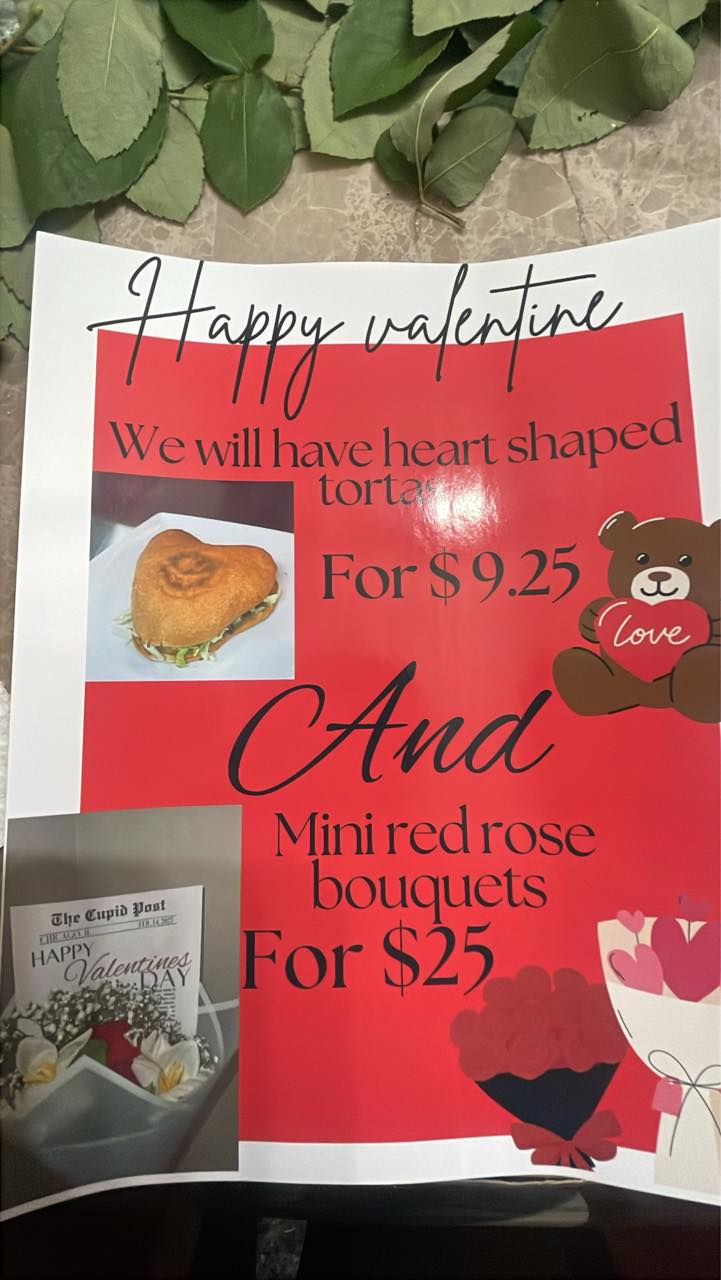 Happy valentine
We will have heart shaped
tortas
For $9.25
love
And
Mini red rose
bouquets
For $25
The Cupid Post
CHICAGO, IL
HAPPY
Valentines
DAY